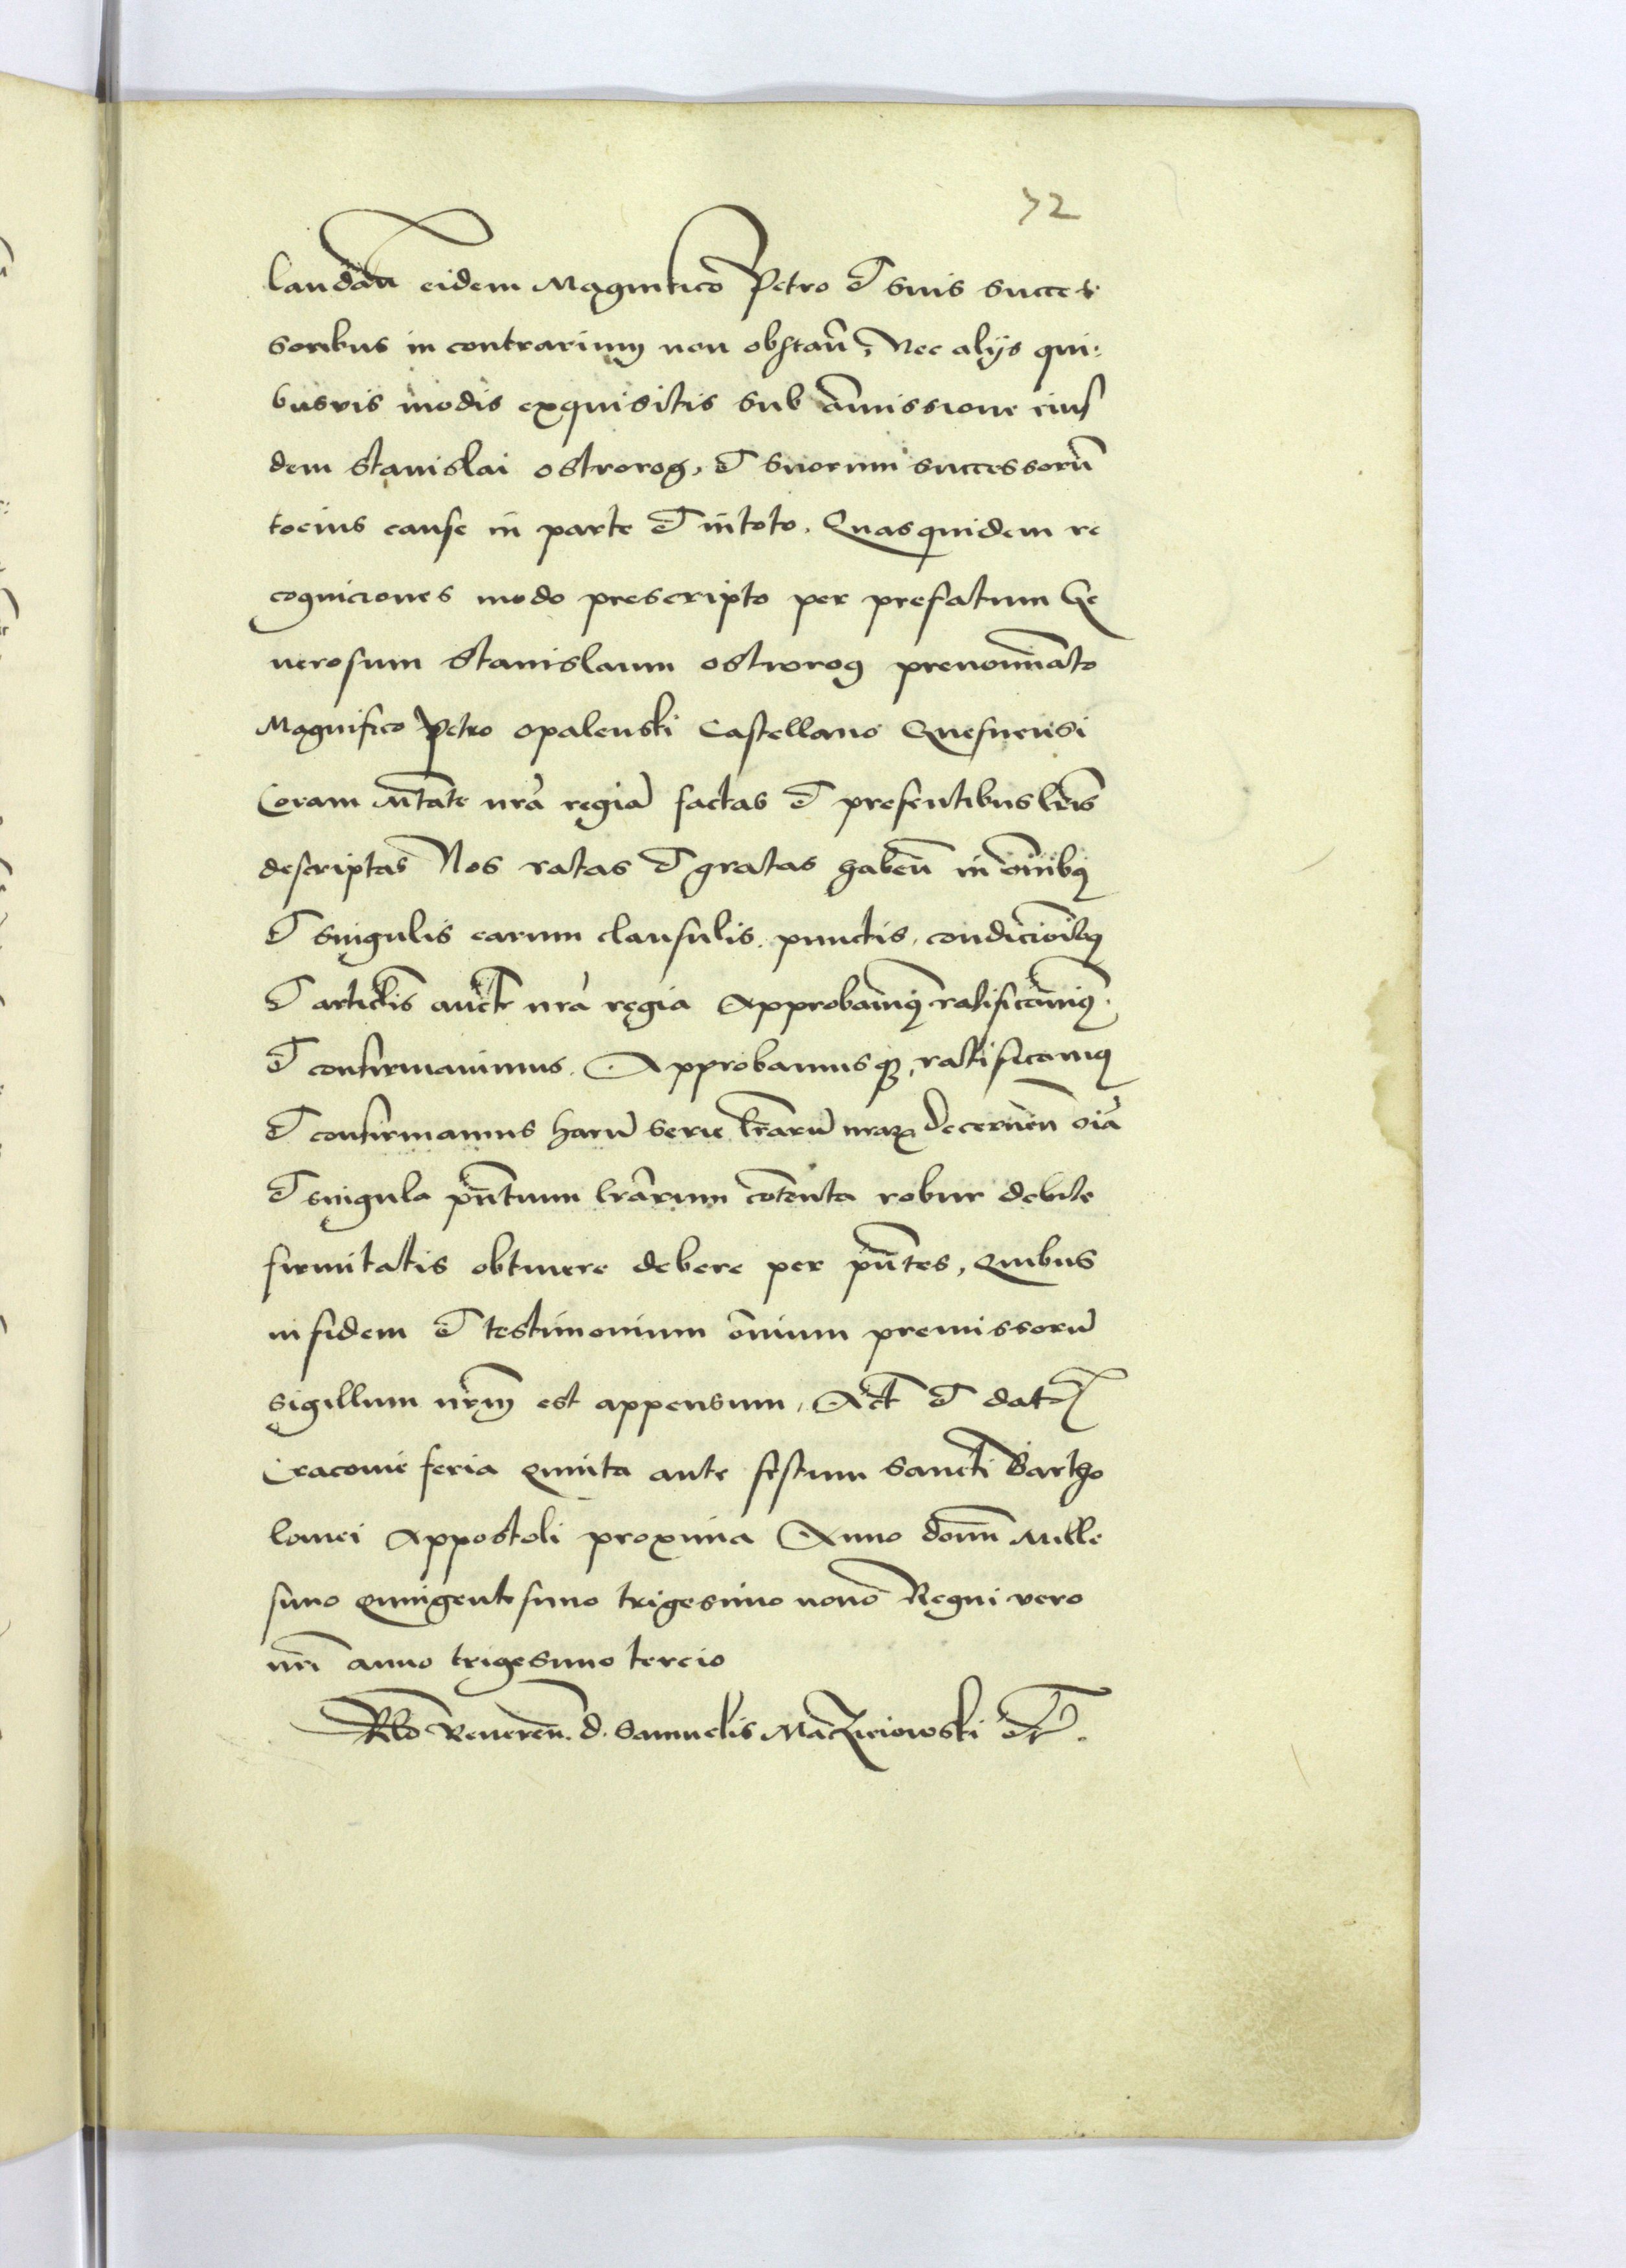 72
laudan̄ eidem Magnifico Petro et suis succes
soribus in contrarium non obstan̄, Nec alijs qui:
busvis modis exquisitis sub am̄issione eius
dem Stanislai ostrorog, et suorum successorū
tocius cause in parte et in toto. Quasquidem re
cogniciones modo prescripto per prefatum Ge
nerosum Stanislaum ostrorog prenominato
Magnifico Petro opalenski Castellano Gnesnensi
Coram Mtāte nrā regia factas et presentibus lrīs
descriptas Nos ratas et gratas haben̄ in om̄ibꝫ
et singulis earum clausulis. punctis, condicionibꝫ
et articlis auctē nrā regia Approbavimꝫ ratificavimꝫ.
et confirmavimus. Approbamusqꝫ, ratificamꝫ
et confirmamus harū serie lrārū nrāꝝ Decernen̄ oīa
et singula pn̄tium lrārum cōtenta robur debite
firmitatis obtinere debere per pn̄tes, Quibus
in fidem et testimonium om̄ium premissorū
sigillum nrm̄ est appensum, Act et dat
Cracovie feria quinta ante festum Sancti Bartho
lomei Appostoli proxima Anno domī Mille
simo quingentesimo trigesimo nono Regni vero
nrī anno trigesimo tercio
Rlō Reveren̄. d. Samuelis Maczieiowski etc.